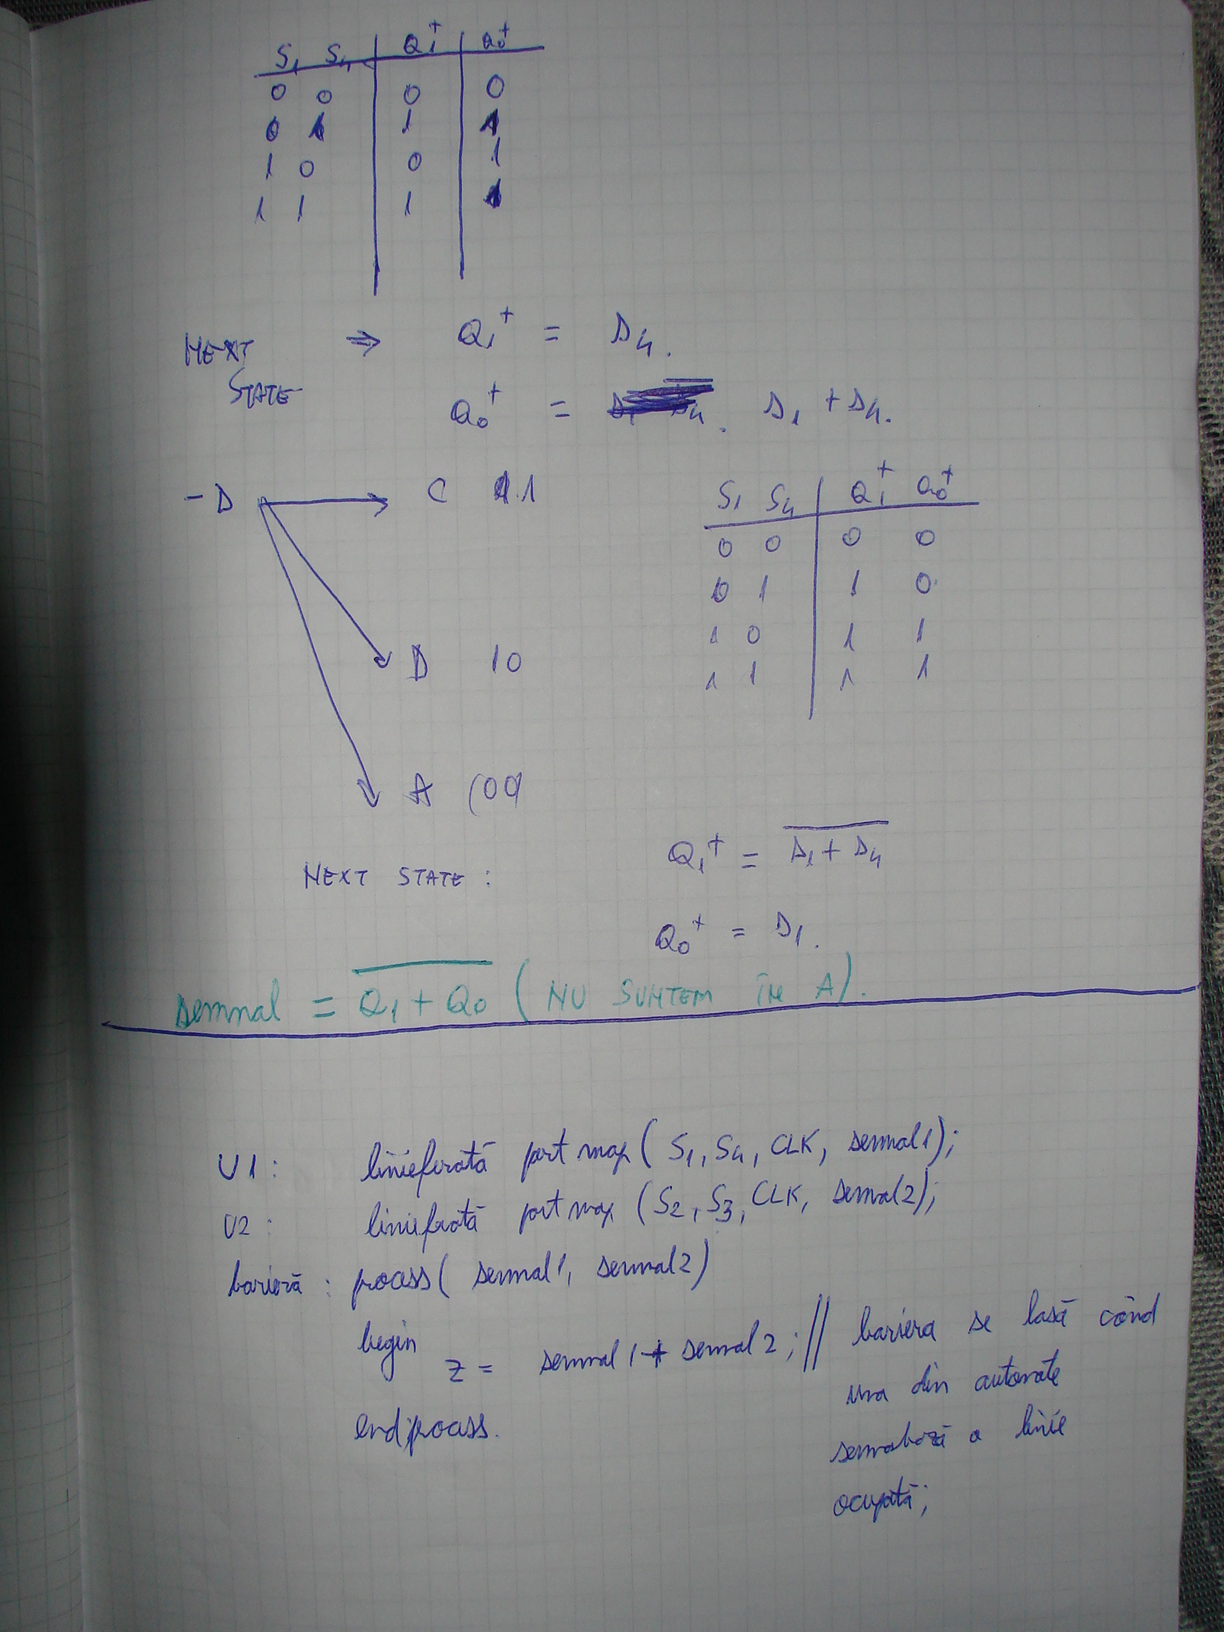 S1 S4 Q1+ Q0+
0 0 0 0
0 1 1 1
1 0 0 1
1 1 1 1
NEXT STATE ⇒ Q1+ = S4.
Q0+ = S1 + S4.
- D C 11
D 10
A (00)
S1 S4 Q1+ Q0+
0 0 0 0
0 1 1 0
1 0 1 1
1 1 1 1
NEXT STATE :
Q1+ = \overline{S1 + S4}
Q0+ = S1.
semnal = \overline{Q1 + Q0} (NU SUNTEM ÎN A).
U1 : linieferată port map ( S1, S4, CLK, semnal1);
U2 : linieferată port map (S2, S3, CLK, semnal2);
barieră : process( semnal1, semnal2)
begin
z = semnal1 + semnal2 ; // bariera se lasă când
una din automate
semnaleză a linie
ocupată;
end process.